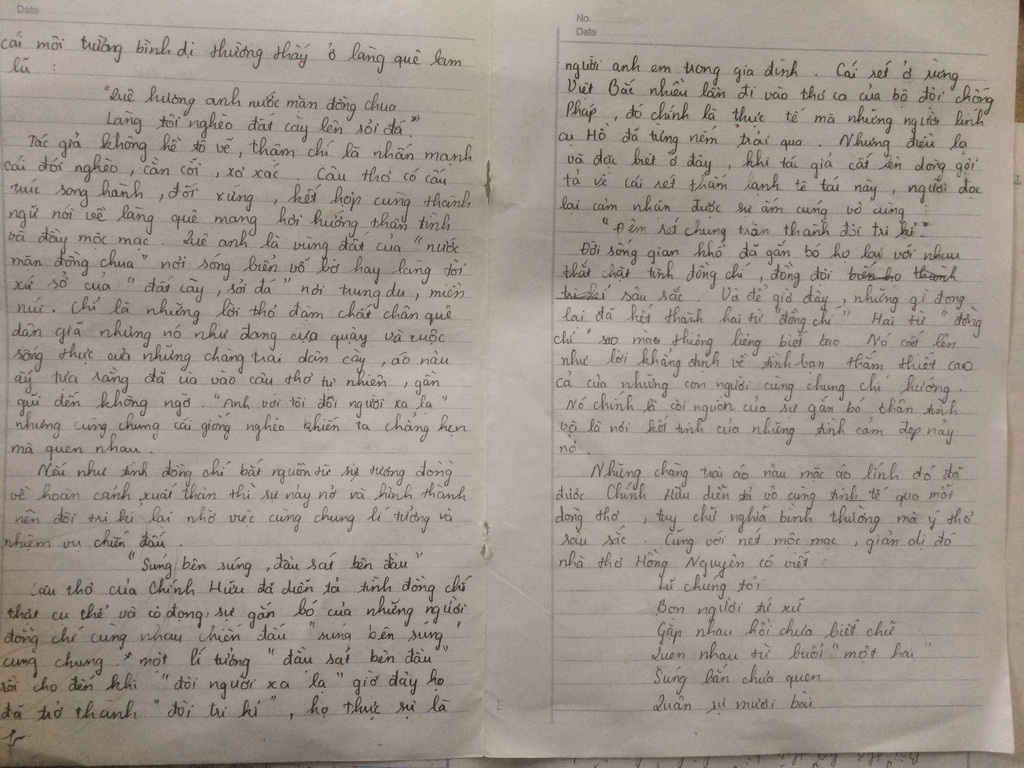 Date
cái môi trường bình dị thường thấy ở làng quê lam
lũ :
"Quê hương anh nước mặn đồng chua
Làng tôi nghèo đất cày lên sỏi đá"
Tác giả không hề tô vẽ, thậm chí là nhấn mạnh
cái đói nghèo, cằn cỗi, xơ xác. Câu thơ có cấu
trúc song hành, đối xứng, kết hợp cùng thành
ngữ nói về làng quê mang hơi hướng thân tình
và đầy mộc mạc. Quê anh là vùng đất của "nước
mặn đồng chua" nơi sóng biển vỗ bờ hay làng tôi
xứ sở của "đất cày, sỏi đá" nơi trung du, miền
núi. Chỉ là những lời thơ đậm chất chân quê
dân giã nhưng nó như đang cựa quậy và cuộc
sống thực của những chàng trai dân cày, áo nâu
ấy tựa rằng đã ùa vào câu thơ tự nhiên, gần
gũi đến không ngờ. "Anh với tôi đôi người xa lạ"
nhưng cùng chung cái giống nghèo khiến ta chẳng hẹn
mà quen nhau.
Nếu như tình đồng chí bắt nguồn từ sự tương đồng
về hoàn cảnh xuất thân thì sự nảy nở và hình thành
nên đôi tri kỉ lại nhờ việc cùng chung lí tưởng và
nhiệm vụ chiến đấu.
"Súng bên súng, đầu sát bên đầu"
Câu thơ của Chính Hữu đã diễn tả tình đồng chí
thật cụ thể và cô đọng, sự gắn bó của những người
đồng chí cùng nhau chiến đấu "súng bên súng"
cùng chung một lí tưởng "đầu sát bên đầu"
rồi cho đến khi "đôi người xa lạ" giờ đây họ
đã trở thành "đôi tri kỉ", họ thực sự là
No.
Date
người anh em trong gia đình. Cái rét ở rừng
Việt Bắc nhiều lần đi vào thơ ca của bộ đội chống
Pháp, đó chính là thực tế mà những người lính
cụ Hồ đã từng nếm trải qua. Nhưng điều lạ
và đặc biệt ở đây, khi tác giả cất lên dòng gợi
tả về cái rét thấm lạnh tê tái này, người đọc
lại cảm nhận được sự ấm cúng vô cùng :
"Đêm rét chung chăn thành đôi tri kỉ"
Đời sống gian khổ đã gắn bó họ lại với nhau
thắt chặt tình đồng chí, đồng đội sâu sắc. Và để giờ đây, những gì đọng
lại đã kết thành hai từ "đồng chí". Hai từ "đồng
chí" sao mà thiêng liêng biết bao. Nó cất lên
như lời khẳng định về tình bạn thắm thiết cao
cả của những con người cùng chung chí hướng.
Nó chính là cội nguồn của sự gắn bó thân tình
và là nơi kết tinh của những tình cảm đẹp nảy
nở.
Những chàng trai áo nâu mặc áo lính đó đã
được Chính Hữu diễn tả vô cùng tinh tế qua mỗi
dòng thơ, tuy chữ nghĩa bình thường mà ý thơ
sâu sắc. Cùng với nét mộc mạc, giản dị đó
nhà thơ Hồng Nguyên có viết :
Lũ chúng tôi
Bọn người tứ xứ
Gặp nhau hồi chưa biết chữ
Quen nhau từ buổi "một hai"
Súng bắn chưa quen
Quân sự mười bài